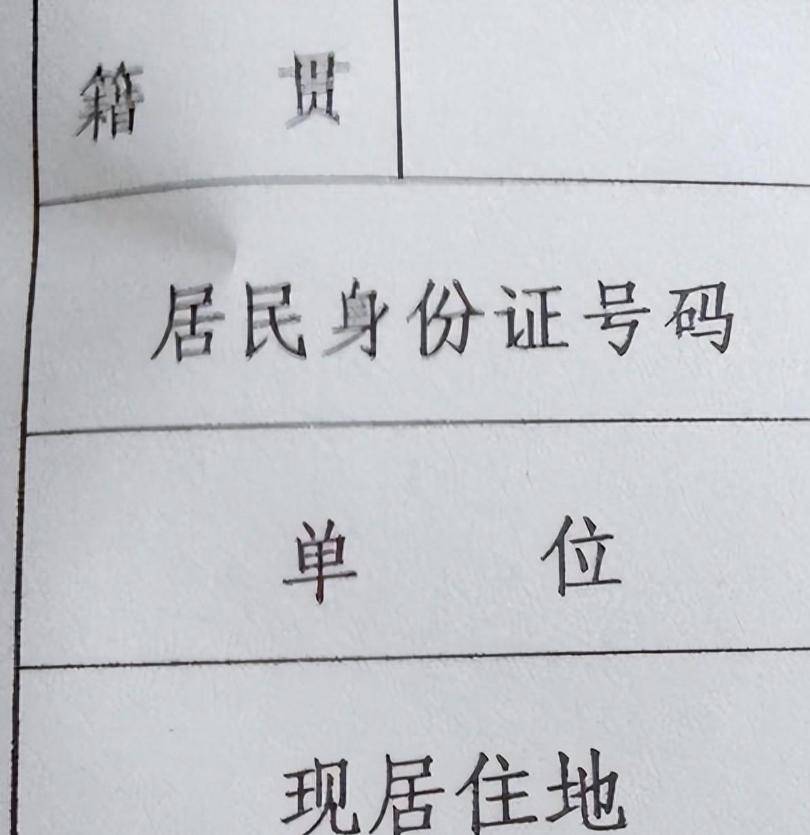 籍贯
居民身份证号码
单位
现居住地